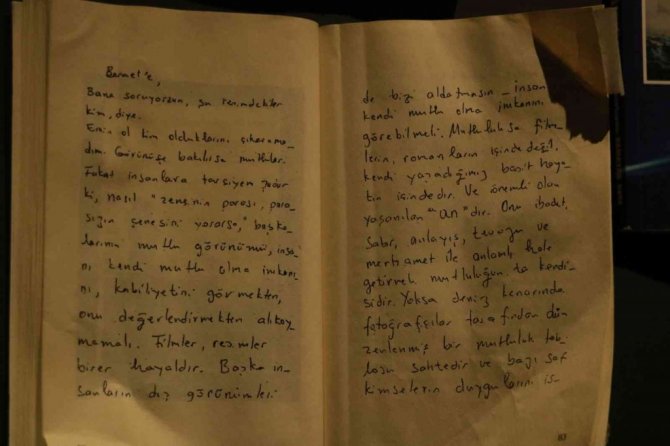 Bennet'e,
Bana soruyorsun, şu resimdekiler
kim, diye.
Emin ol kim olduklarını çıkarama-
dım. Görünüşe bakılırsa mutlular.
Fakat insanlara tavsiyem şudur
ki, nasıl "zenginin parası, züğü-
çenesini yorarsa," başka-
larının mutlu görünümü, insa-
nı kendi mutlu olma imkanı-
nı, kabiliyetini görmekten,
onu değerlendirmekten alıkoy-
mamalı. Filmler, resimler
birer hayaldir. Başka in-
sanların dış görünümleri
de bizi aldatmasın - insan
kendi mutlu olma imkanını
görebilmeli. Mutluluksa film-
lerin, romanların içinde değil,
kendi yaşadığımız basit haya-
tın içindedir. Ve önemli olan
yaşanılan "an"dır. Onu ibadet,
sabır, anlayış, tevazu ve
merhamet ile anlamlı hale
getirmek mutluluğun ta kendi-
sidir. Yoksa deniz kenarında
fotoğrafçılar tarafından dü-
zenlenmiş bir mutluluk tab-
losu sahtedir ve bazı saf
kimselerin duygularını is-